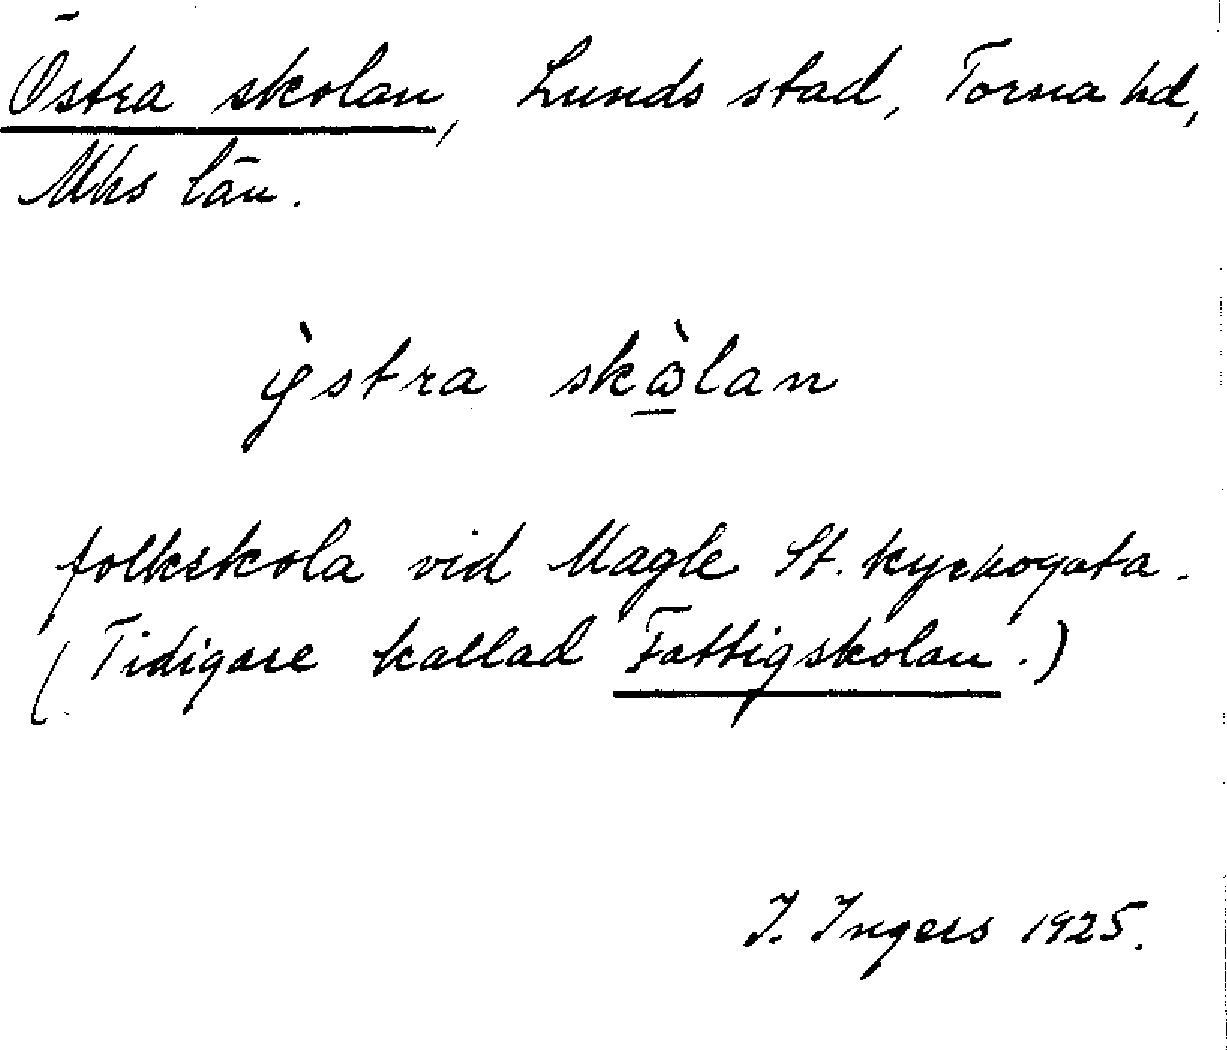 Östra skolan, Lunds stad, Torna hd,
Mhs län.
ỳstra skὼlan
folkskola vid Magle St. kyrkogata.
(Tidigare kallad Fattigskolan.)
I. Ingers 1925.